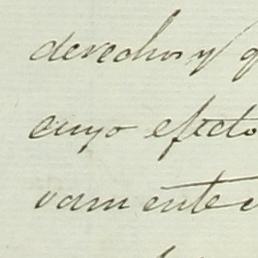 derechos y q
cuyo efecto
vamente